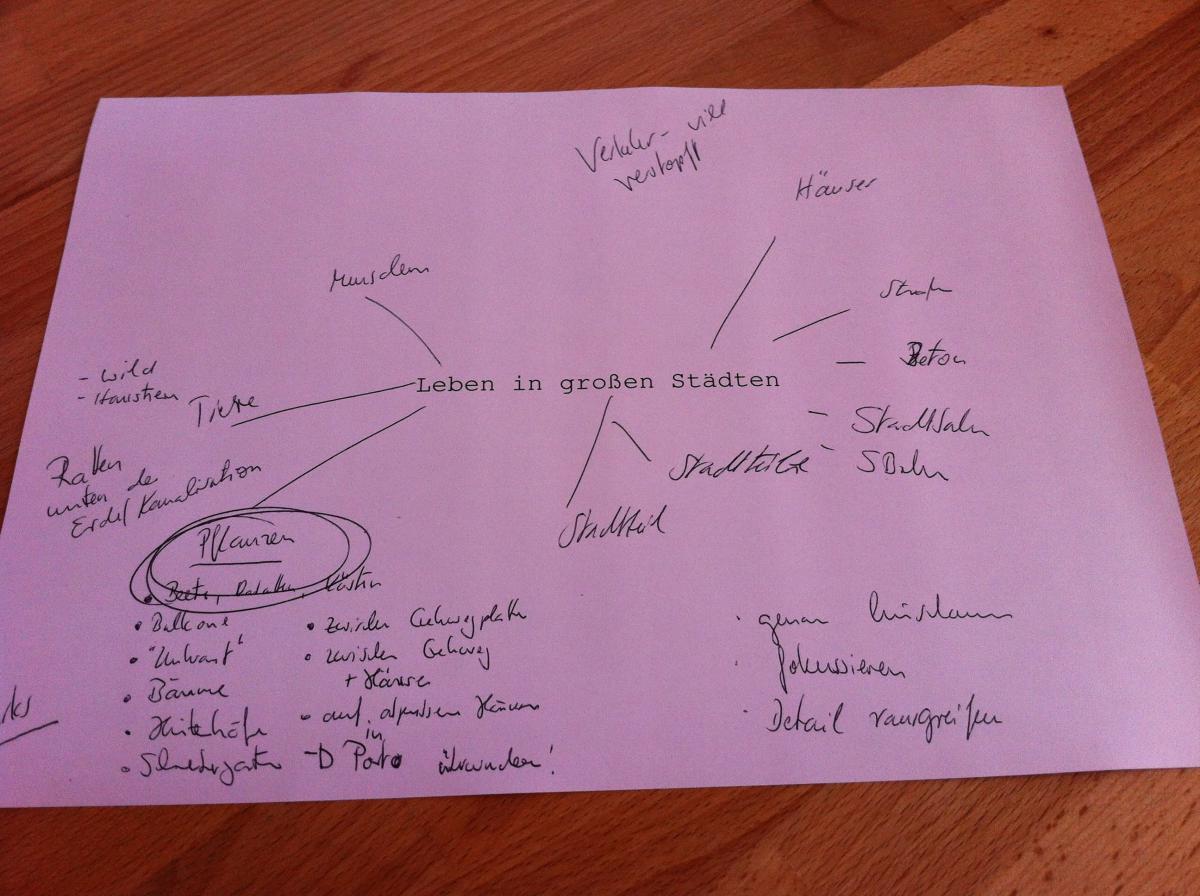 Verkehr - viel
verstopft
Häuser
Menschen
Straßen
- wild
- Haustiere
Tiere
Leben in großen Städten
- Beton
- Stadtbahn
- S Bahn
Stadtteile
Ratten
unter der
Erde/Kanalisation
Stadtteil
Pflanzen
• Beete, Rabatten, Kästen
• Balkone
• "Unkraut"
• Bäume
• Hinterhöfe
• Schrebergärten
• zwischen Gehwegplatten
• zwischen Gehweg
+ Häuser
• auf Häusern
in
Porto
• genau hinschauen
• fokussieren
• Detail rausgreifen